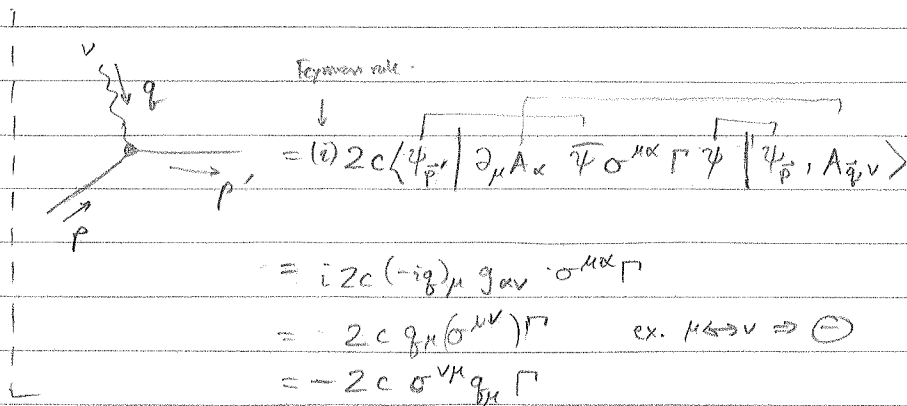 ν
q
p
p'
Feynman rule.
↓
= (i) 2c ⟨ψ_{\vec{p}'} | ∂_μ A_α \bar{ψ} σ^{μα} Γ ψ | ψ_{\vec{p}}, A_{\vec{q},ν} ⟩
= i 2c (-iq)_μ g_{αν} · σ^{μα} Γ
= 2c q_μ (σ^{μν}) Γ ex. μ↔ν ⇒ ⊖
= -2c σ^{νμ} q_μ Γ